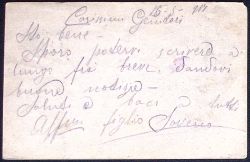 Carissimi Genitori
Sto bene -
Spero potervi scrivere a
lungo fra breve, dandovi
buone notizie -
Saluti e baci a tutti
Affmo figlio